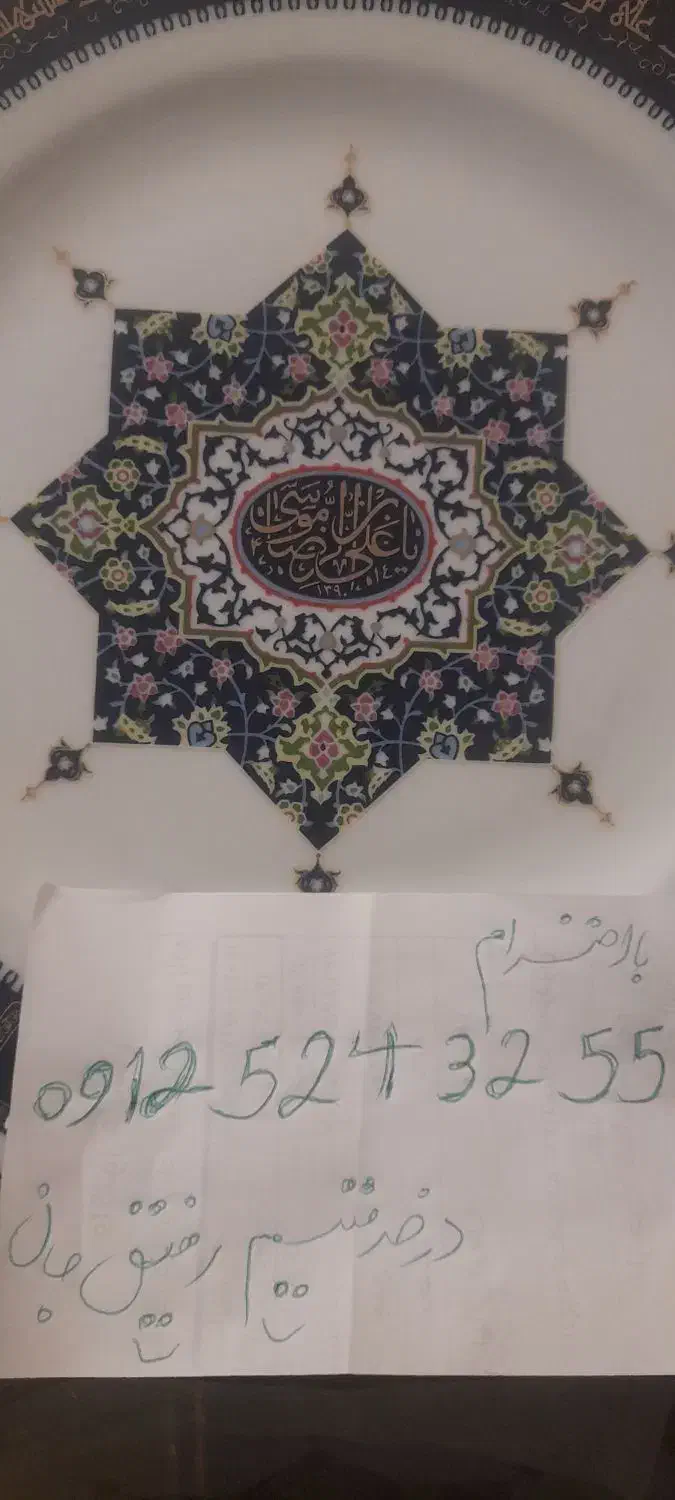 یا علی بن موسی الرضا
۱۳۹۰
بااحترام
0912 524 32 55
درخدمتیم رفیق جان